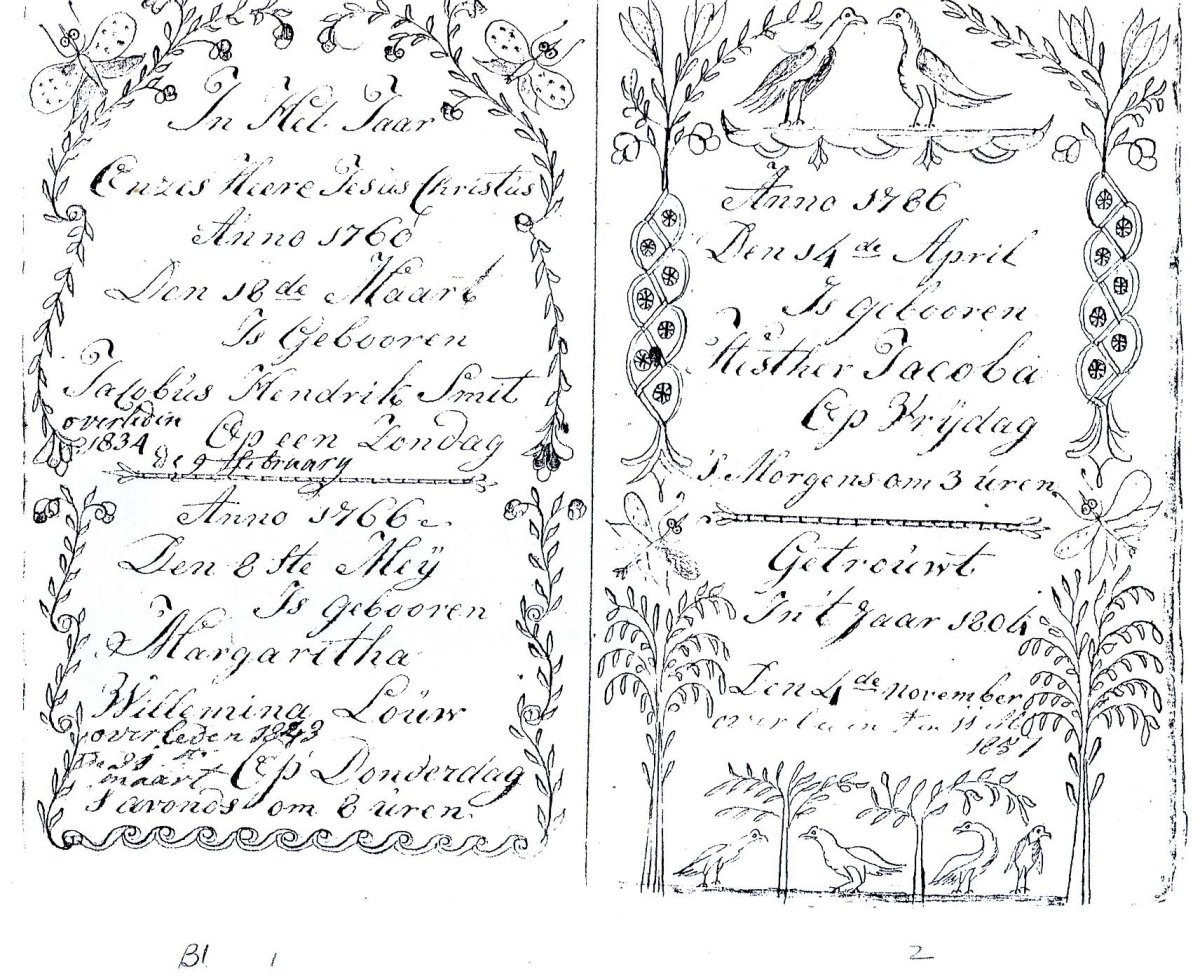 In Het Jaar
Onzes Heere Jesus Christus
Anno 1760
Den 18de Maart
Is Gebooren
Jacobus Hendrik Smit
overleden
1834 Op een Zondag
de 9 February
Anno 1766
Den 8ste Meÿ
Is gebooren
Margaritha
Willemina Louw
overleden 1843
maart Op Donderdag
s avonds om 8 uren.
Bl 1
Anno 1786
Den 14de April
Is gebooren
Hesther Jacoba
Op Vrÿdag
's Morgens om 3 uren
Getrouwt
In't Jaar 1804
Den 4de november
overleeden den 11
1851
2